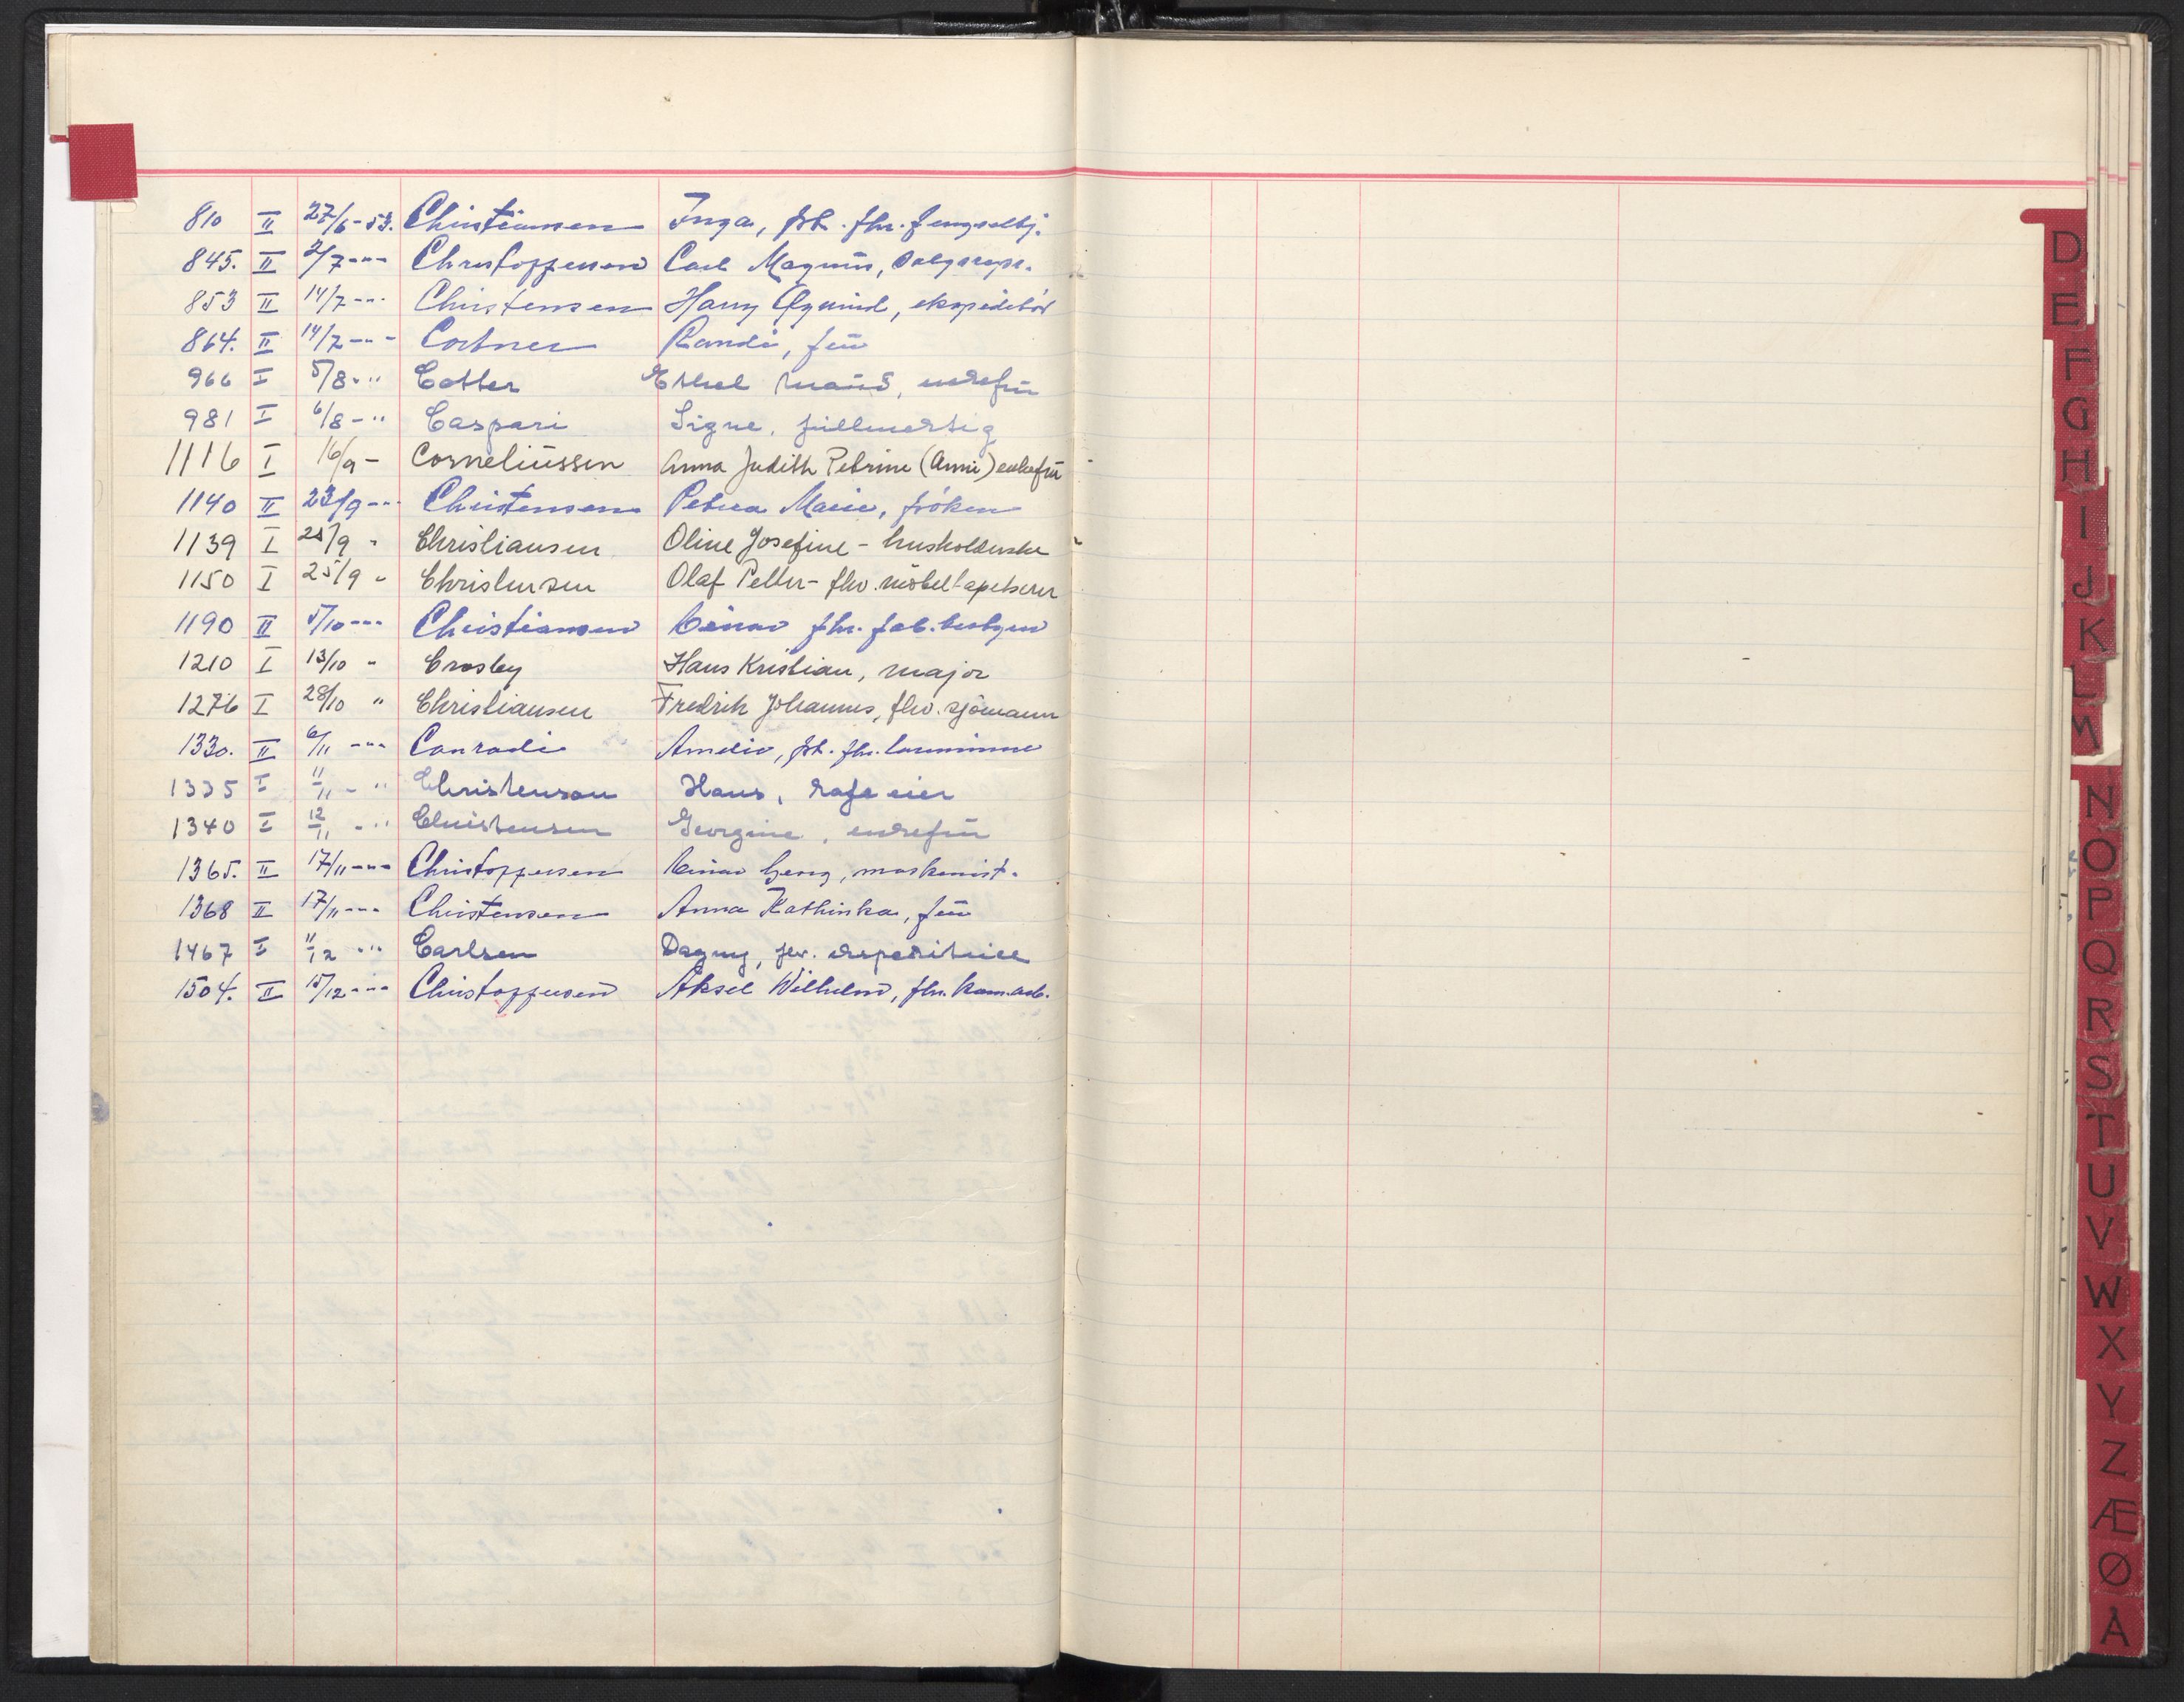 810 II 27/6-53. Christiansen Inga, fhv. fengselbj.
845. II 2/7 -"- Christoffersen Carl Magnus, salgsrepr.
853 II 14/7 -"- Christensen Harry Øyvind, ekspeditør
864. II 14/7 -"- Cortner Randi, frü
966 I 5/8 -" Cotter Ethel Maud, enkefrü
981 I 6/8 -" Caspari Signe, füllmektig
1116 I 16/9 - Corneliüssen Anna Judith Petrine (Anni) enkefrü
1140 II 23/9 -"- Christensen Petrea Marie, frøken
1139 I 25/9 " Christiansen Oline Josefine - husholderske
1150 I 25/9 " Christensen Olaf Petter - fhv. møbeltapetserer
1190 II 5/10 -"- Christiansen Einar fhv. fab.
1210 I 13/10 " Crosby Hans Kristian, major
1276 I 28/10 " Christiansen Fredrik Johannes, fhv. sjömann
1330. II 6/11 -"- Conradi
1335 I 11/11 -" Christensen Hans, kafeeier
1340 I 12/11 -" Christensen Georgine, enkefrü
1365. II 17/11 -"- Christoffersen Einar Georg, maskinist.
1368 II 17/11 -"- Christensen Anna Kathinka, frü
1467 I 11/12 -" Carlsen Dagny, fhv. ekspeditrice
1504. II 15/12 -"- Christoffersen Aksel Wilhelm, fhv. kom.arb.
D
E
F
G
H
I
J
K
L
M
N
O
P
Q
R
S
T
U
V
W
X
Y
Z
Æ
Ø
Å